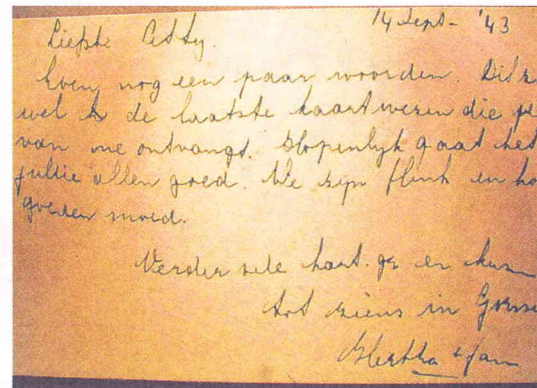 14 Sept- '43
Liefste Citty.
Even nog een paar woorden. Dit z
wel de laatste kaart wezen die je
van me ontvangt. Hopenlyk gaat het
jullie allen goed. We zijn flink en ho
goeden moed.
Verder vele hart. gr en kusse
tot ziens in
Hertha & fam